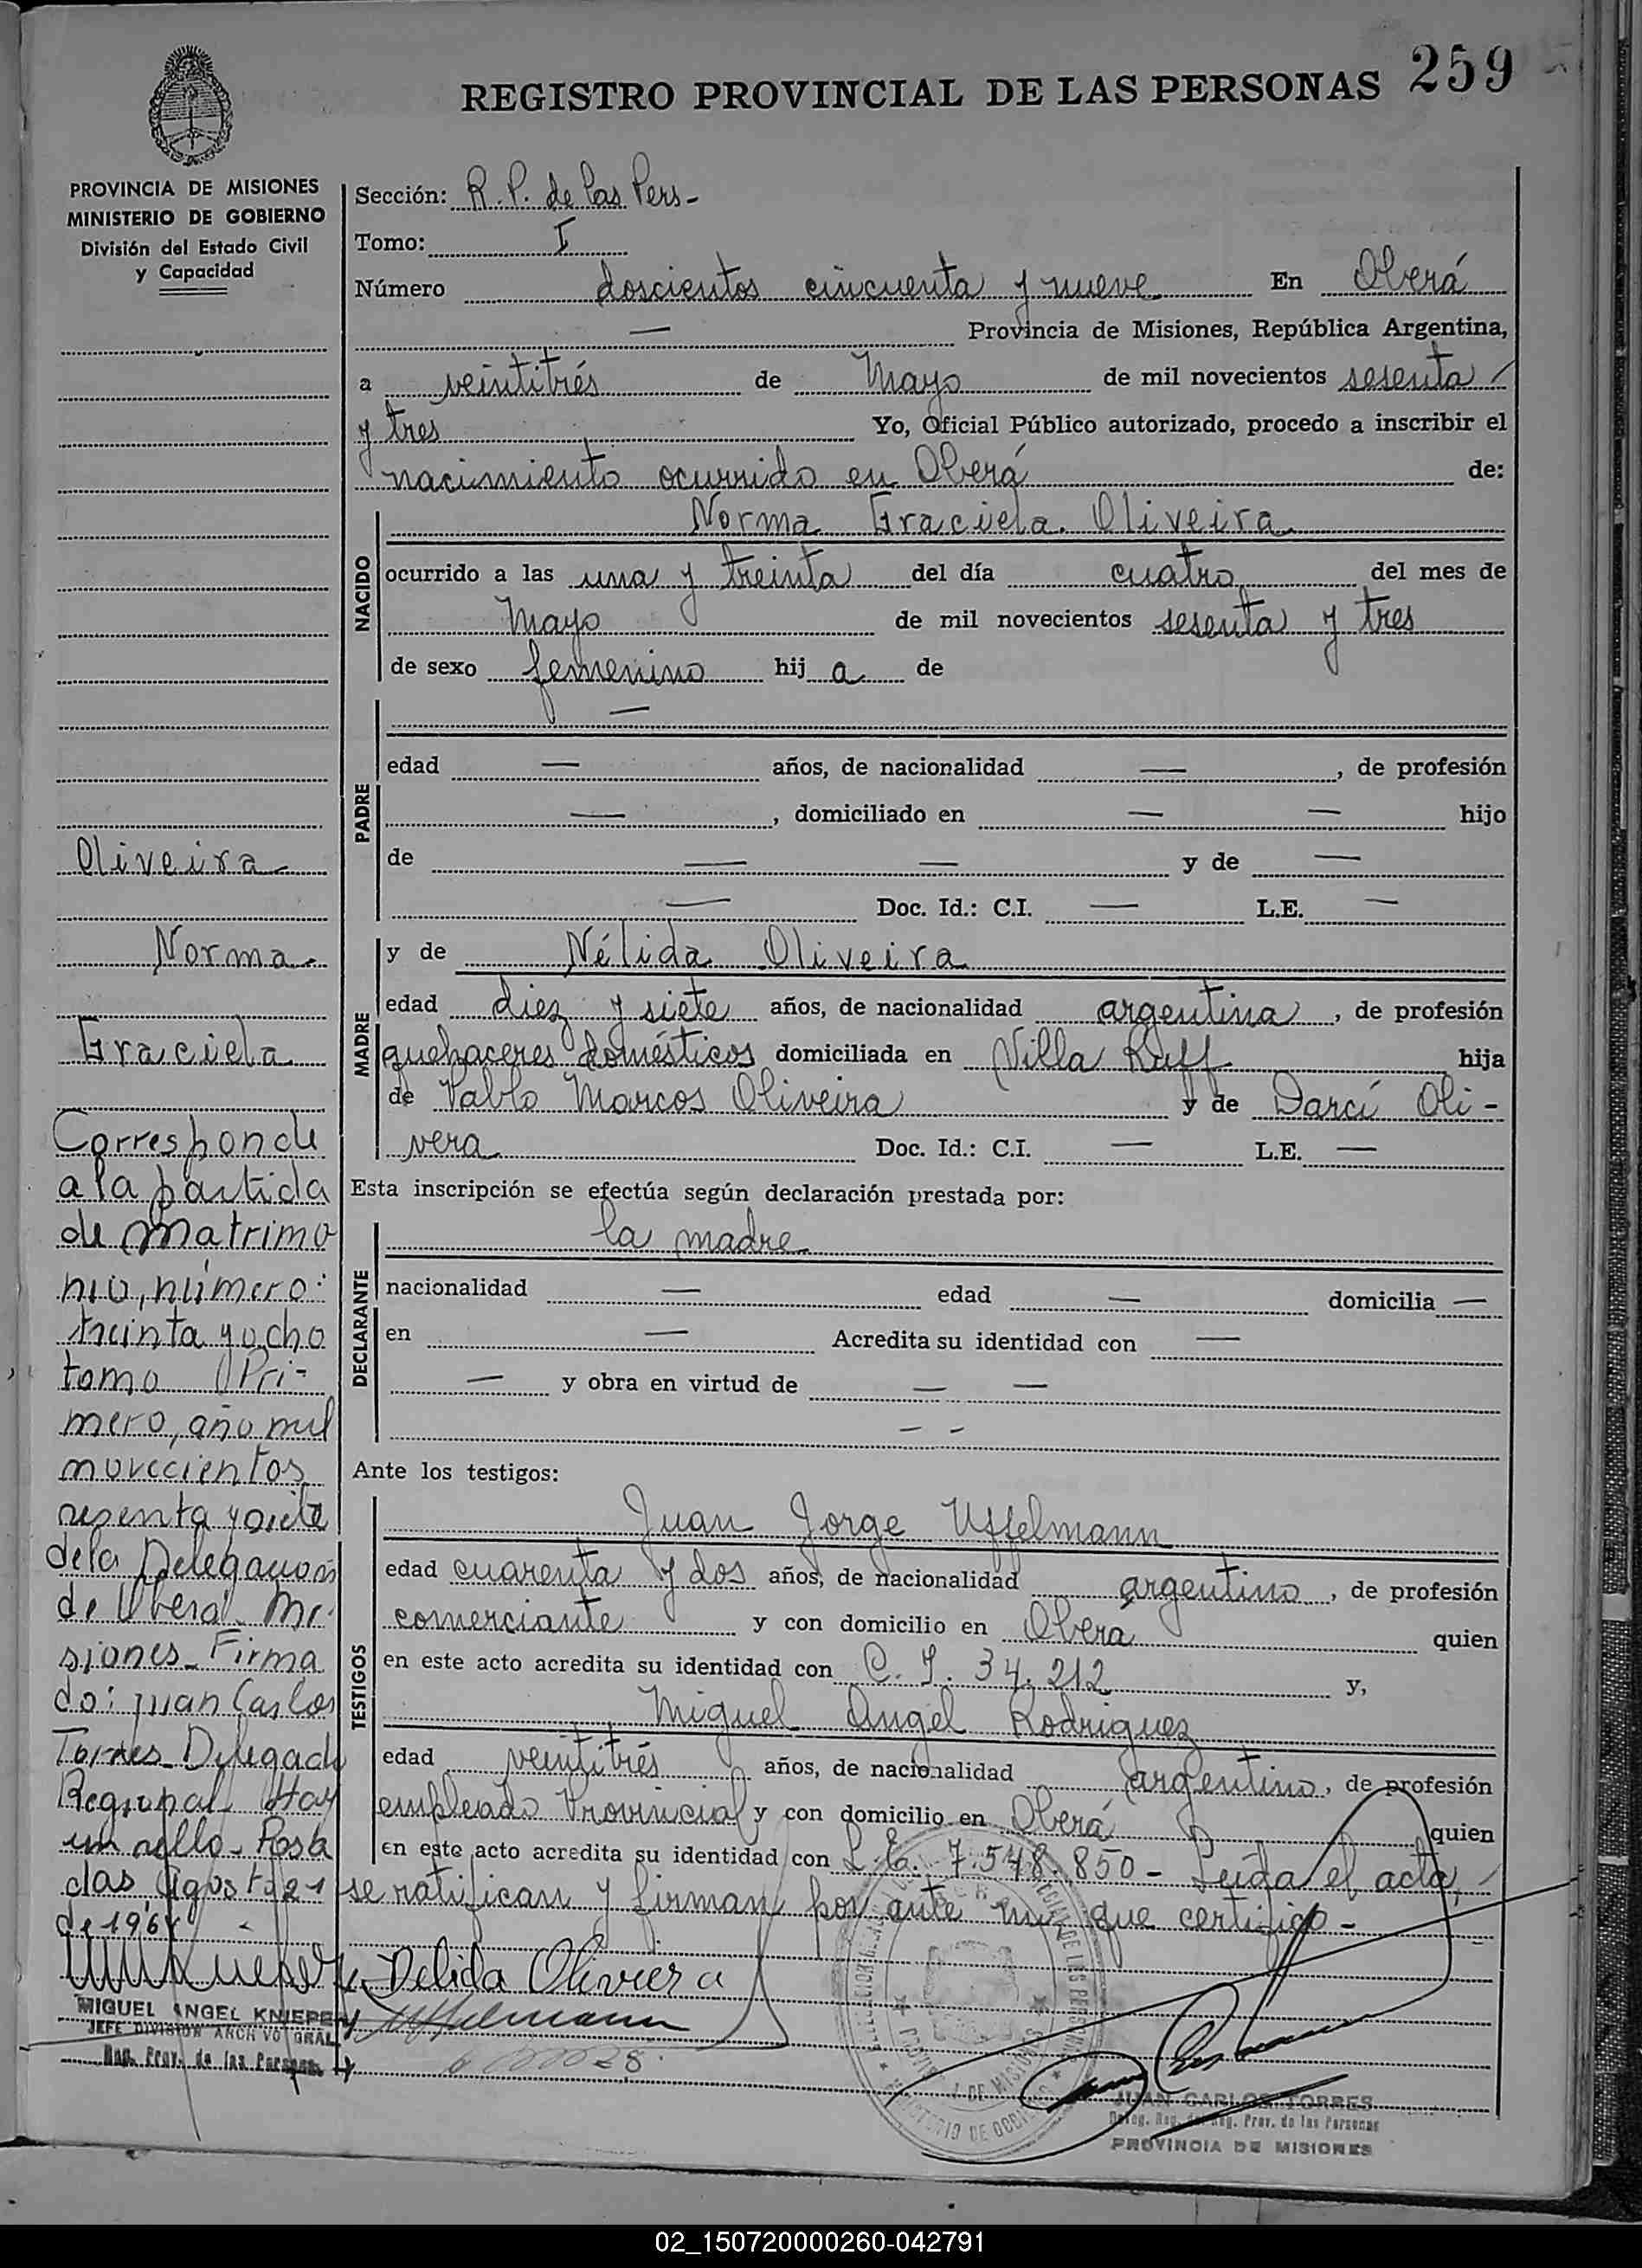 259
REGISTRO PROVINCIAL DE LAS PERSONAS
PROVINCIA DE MISIONES
MINISTERIO DE GOBIERNO
División del Estado Civil
y Capacidad
Sección: R. P. de las Pers-
Tomo: I
Número doscientos cincuenta y nueve En Oberá
— Provincia de Misiones, República Argentina,
a veintitrés de Mayo de mil novecientos sesenta
y tres Yo, Oficial Público autorizado, procedo a inscribir el
nacimiento ocurrido en Oberá de:
NACIDO
Norma Graciela Oliveira
ocurrido a las una y treinta del día cuatro del mes de
Mayo de mil novecientos sesenta y tres
de sexo femenino hij a de
PADRE
—
edad — años, de nacionalidad —, de profesión
—, domiciliado en — — hijo
de — — y de —
— Doc. Id.: C.I. — L.E. —
MADRE
y de Nélida Oliveira
edad diez y siete años, de nacionalidad argentina, de profesión
quehaceres domésticos domiciliada en Villa Ruff hija
de Pablo Marcos Oliveira y de Darcí Oli-
vera Doc. Id.: C.I. — L.E. —
Esta inscripción se efectúa según declaración prestada por:
DECLARANTE
la madre
nacionalidad — edad — domicilia —
en — Acredita su identidad con —
— y obra en virtud de — —
— —
Ante los testigos:
TESTIGOS
Juan Jorge Uffelmann
edad cuarenta y dos años, de nacionalidad argentino, de profesión
comerciante y con domicilio en Oberá quien
en este acto acredita su identidad con C. I. 34.212 y,
Miguel Angel Rodriguez
edad veintitrés años, de nacionalidad argentino, de profesión
empleado Provincial y con domicilio en Oberá quien
en este acto acredita su identidad con L. E. 7.548.850 - Leída el acta,
se ratifican y firman por ante mi, que certifico -
Oliveira
Norma
Graciela
Corresponde
a la partida
de Matrimo
nio, número:
treinta y ocho
tomo Pri-
mero, año mil
novecientos
sesenta y siete
de la Delegación
de Oberá Mi-
siones - Firma
do: Juan Carlos
Torres Delegado
Regional Hay
un sello - Posa
das Agosto 21
de 196
MIGUEL ANGEL KNIEPER
JEFE DIVISION ARCHIVO GRAL
Reg. Prov. de las Personas
Delida Oliviera
Uffelmann
JUAN CARLOS TORRES
Deleg. Reg. del Reg. Prov. de las Personas
PROVINCIA DE MISIONES
02_150720000260-042791